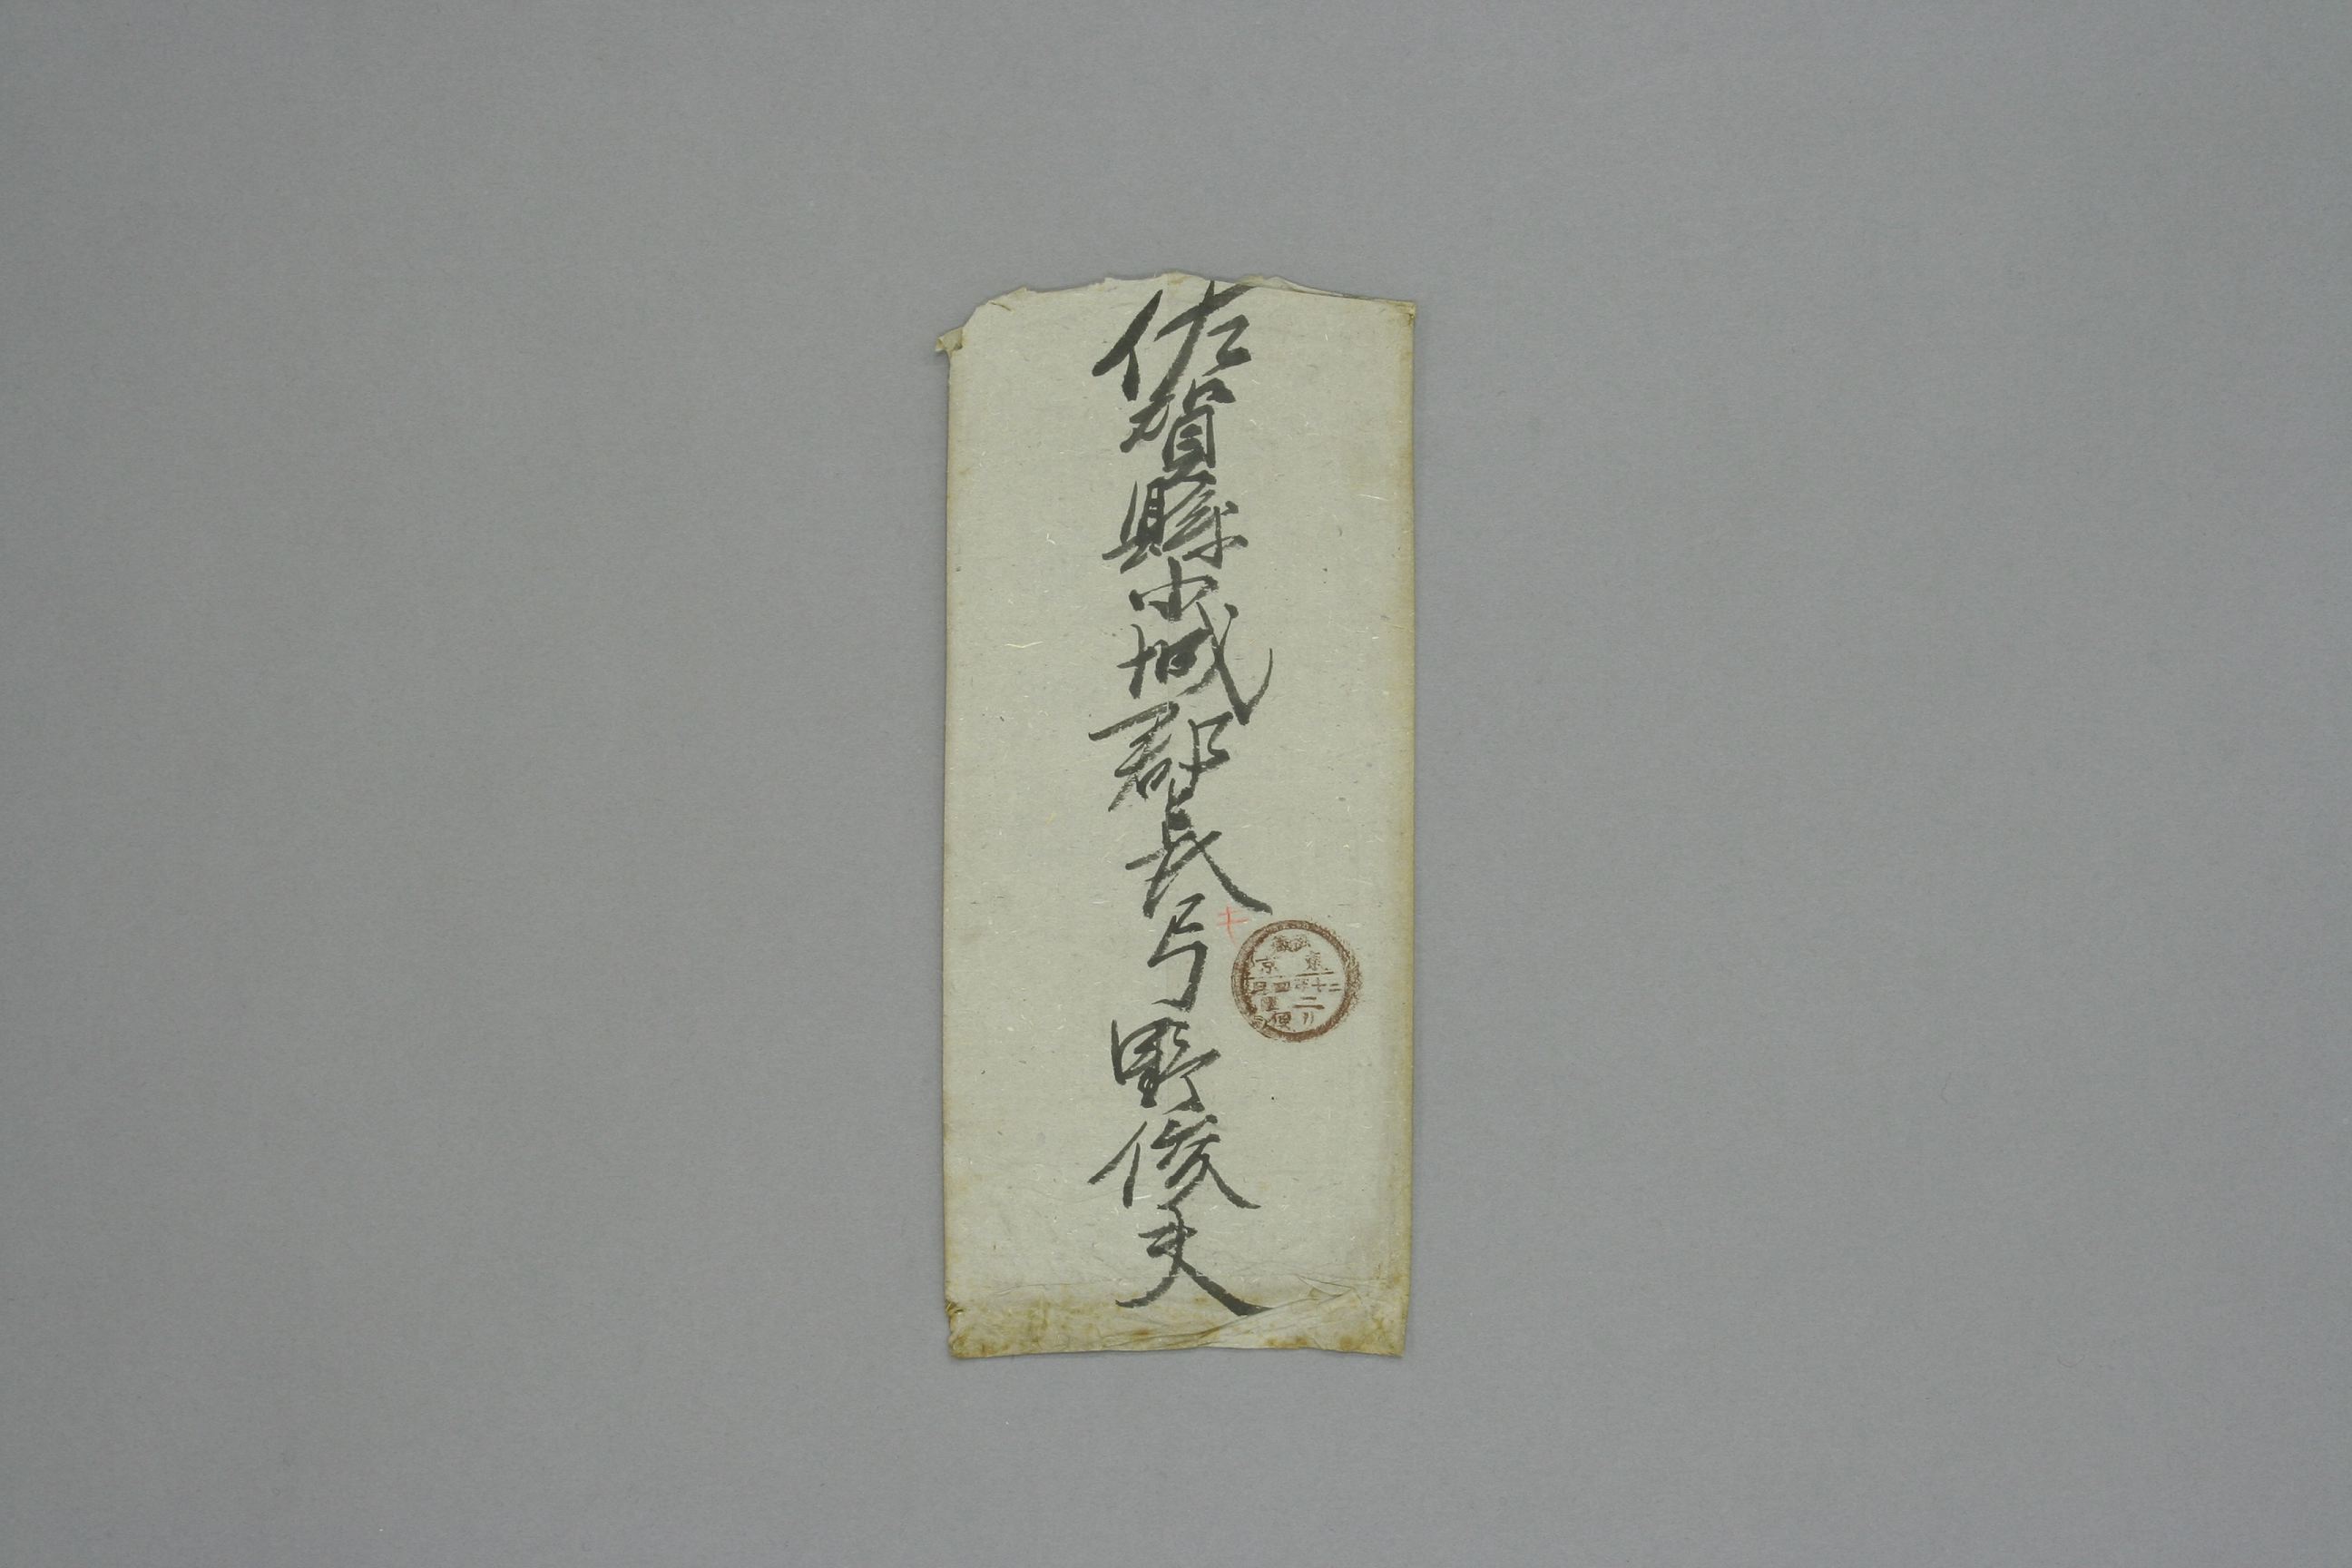 佐賀縣小城郡長弓野俊夫
東京